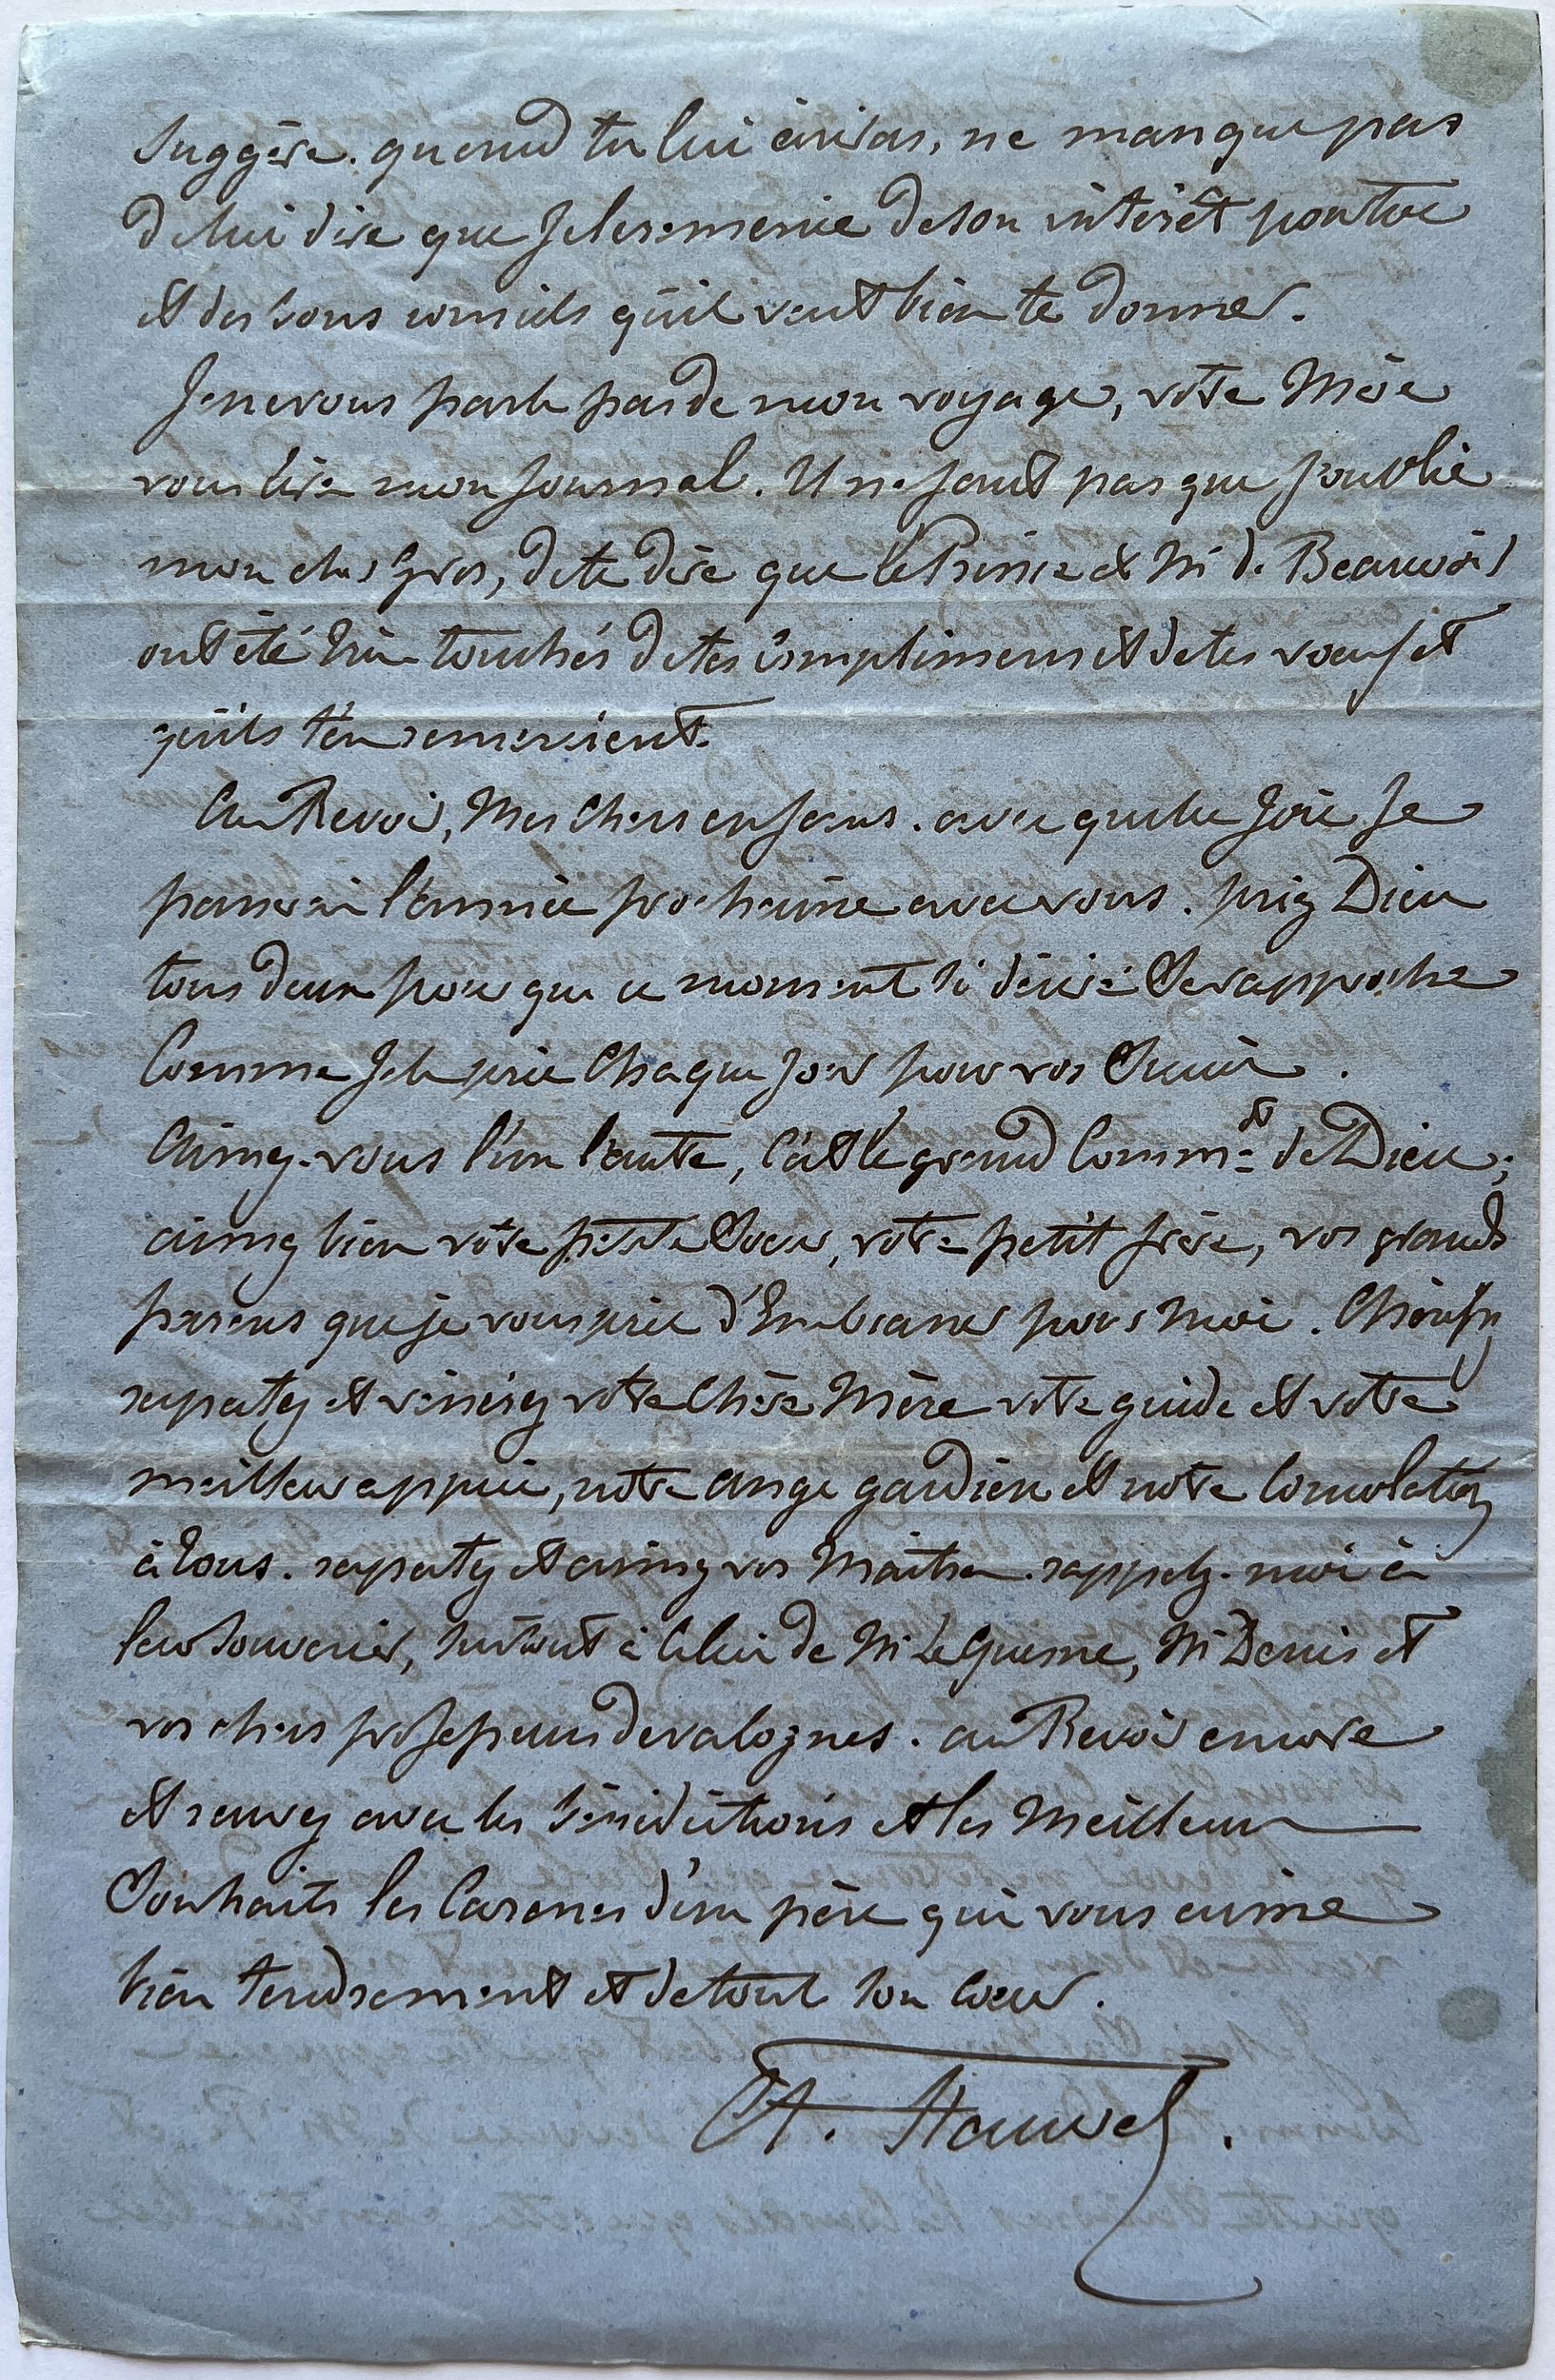 suggère. quand tu lui écriras, ne manque pas
de lui dire que je le remercie de son intérêt pour toi
et des bons conseils qu'il veut bien te donner.
Je ne vous parle pas de mon voyage, votre Mère
vous lira mon journal. Il ne faut pas que j'oublie
mon cher gros, de te dire que le Prince & Mr de Beauvoir
ont été bien touchés de tes complimens et de tes voeux et
qu'ils t'en remercient.
Au Revoir, Mes Chers enfans. avec quelle joie je
passerai l'année prochaine avec vous. priez Dieu
tous deux pour que ce moment si désiré se rapproche
Comme je le prie Chaque jour pour vos Succès.
Aimez-vous l'un l'autre, C'est le grand Commdt de Dieu;
aimez bien votre petite Soeur, votre petit frère, vos grands
parens que je vous prie d'Embrasser pour Moi. Chérissez
respectez et vénérez votre Chère Mère votre guide et votre
meilleur appui, notre ange gardien et notre Consolation
à tous. respectez et aimez vos Maîtres. rappelez-moi à
leur Souvenir, surtout à Celui de Mr Leguerne, Mr Denis et
vos chers professeurs de valognes. au Revoir encore
et recevez avec les bénédictions et les Meilleurs
Souhaits les Caresses d'un père qui vous aime
bien tendrement et de tout son Coeur.
A. Fauvel.